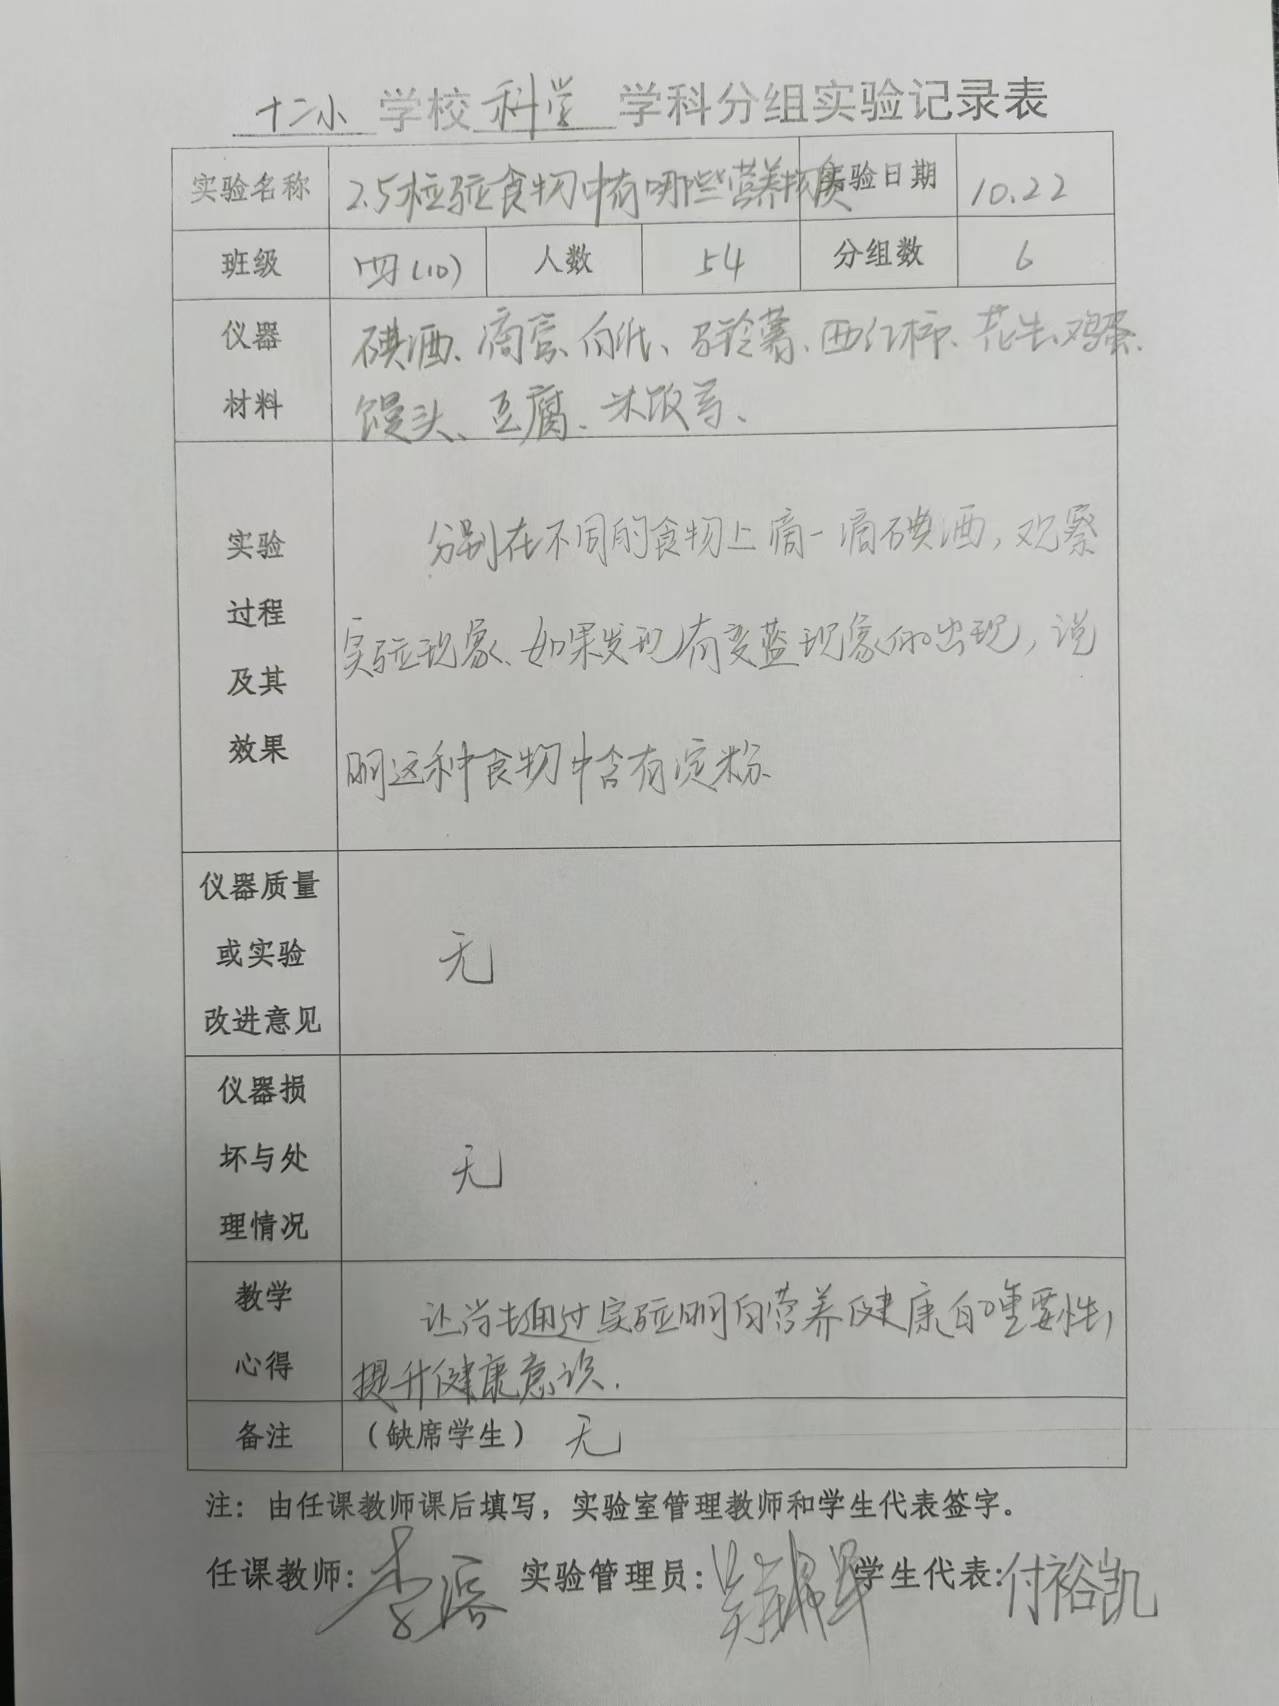 十二小 学校 科学 学科分组实验记录表
实验名称 2.5检验食物中有哪些营养物质 实验日期 10.22
班级 四(10) 人数 54 分组数 6
仪器 碘酒、滴管、白纸、马铃薯、西红柿、花生、鸡蛋、
材料 馒头、豆腐、米饭等、
实验 分别在不同的食物上滴一滴碘酒,观察
过程 实验现象、如果发现有变蓝现象的出现,说
及其
效果 明这种食物中含有淀粉、
仪器质量
或实验 无
改进意见
仪器损
坏与处 无
理情况
教学 让学生通过实验明白营养健康的重要性,
心得 提升健康意识.
备注 (缺席学生) 无
注:由任课教师课后填写,实验室管理教师和学生代表签字。
任课教师: 李 实验管理员: 学生代表: 付裕凯